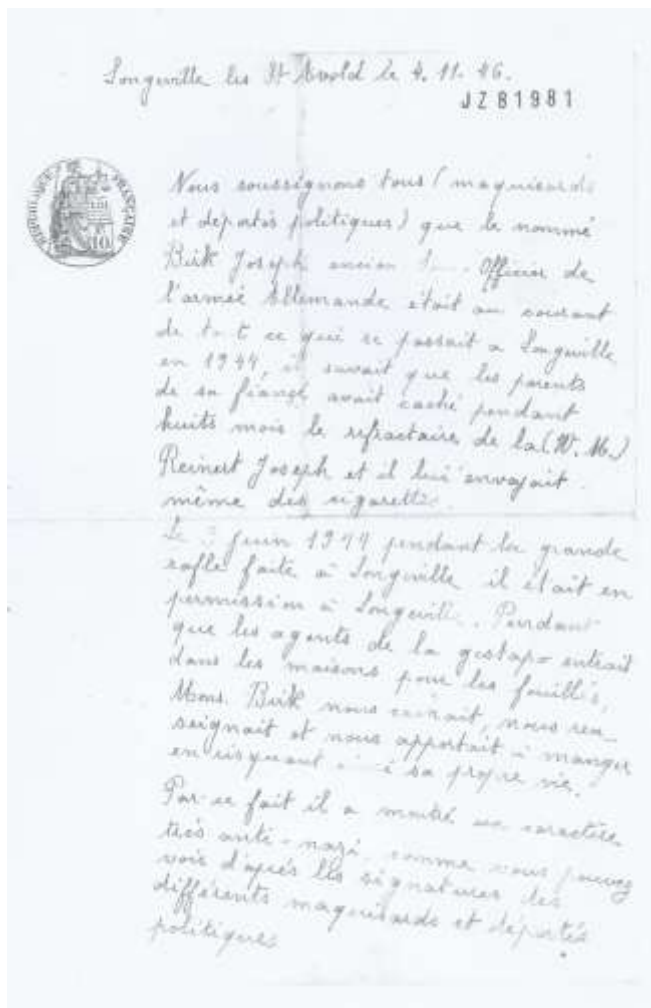 Longeville les St Avold le 4. 11. 46.
JZ 81981
REPUBLIQUE FRANÇAISE
10
Nous soussignons tous (maquisards
et deportés politiques) que le nommé
Birk Joseph ancien Officier de
l'armée Allemande était au courant
de tout ce qui se passait a Longeville
en 1944, il savait que les parents
de sa fiancé avait caché pendant
huits mois le refractaire de la (W. M.)
Reinert Joseph et il lui envoyait
même des sigarettes.
Le Juin 1944 pendant la grande
rafle faite à Longeville il était en
permission à Longeville. Pendant
que les agents de la gestapo entrait
dans les maisons pour les fouillés,
Mons. Birk nous nous ren_
seignait et nous apportait à manger
en risquant sa propre vie.
Par ce fait il a montré un caractère
très anti-nazi, comme vous pouvez
voir d'après les signatures des
différents maquisards et déportés
politiques.